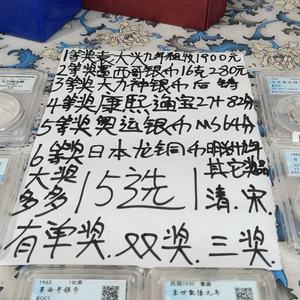 1等奖袁大头九年
1900元
2等奖墨西哥银币16克280元
3等奖大力神银币后铸
4等奖康熙通宝27十82分
5等奖奥运银币MS64分
6等奖日本龙铜币明治九年
大奖
多多
15选1
其它奖品
清.宋
有单奖.双奖.三奖
墨西哥银币
民国